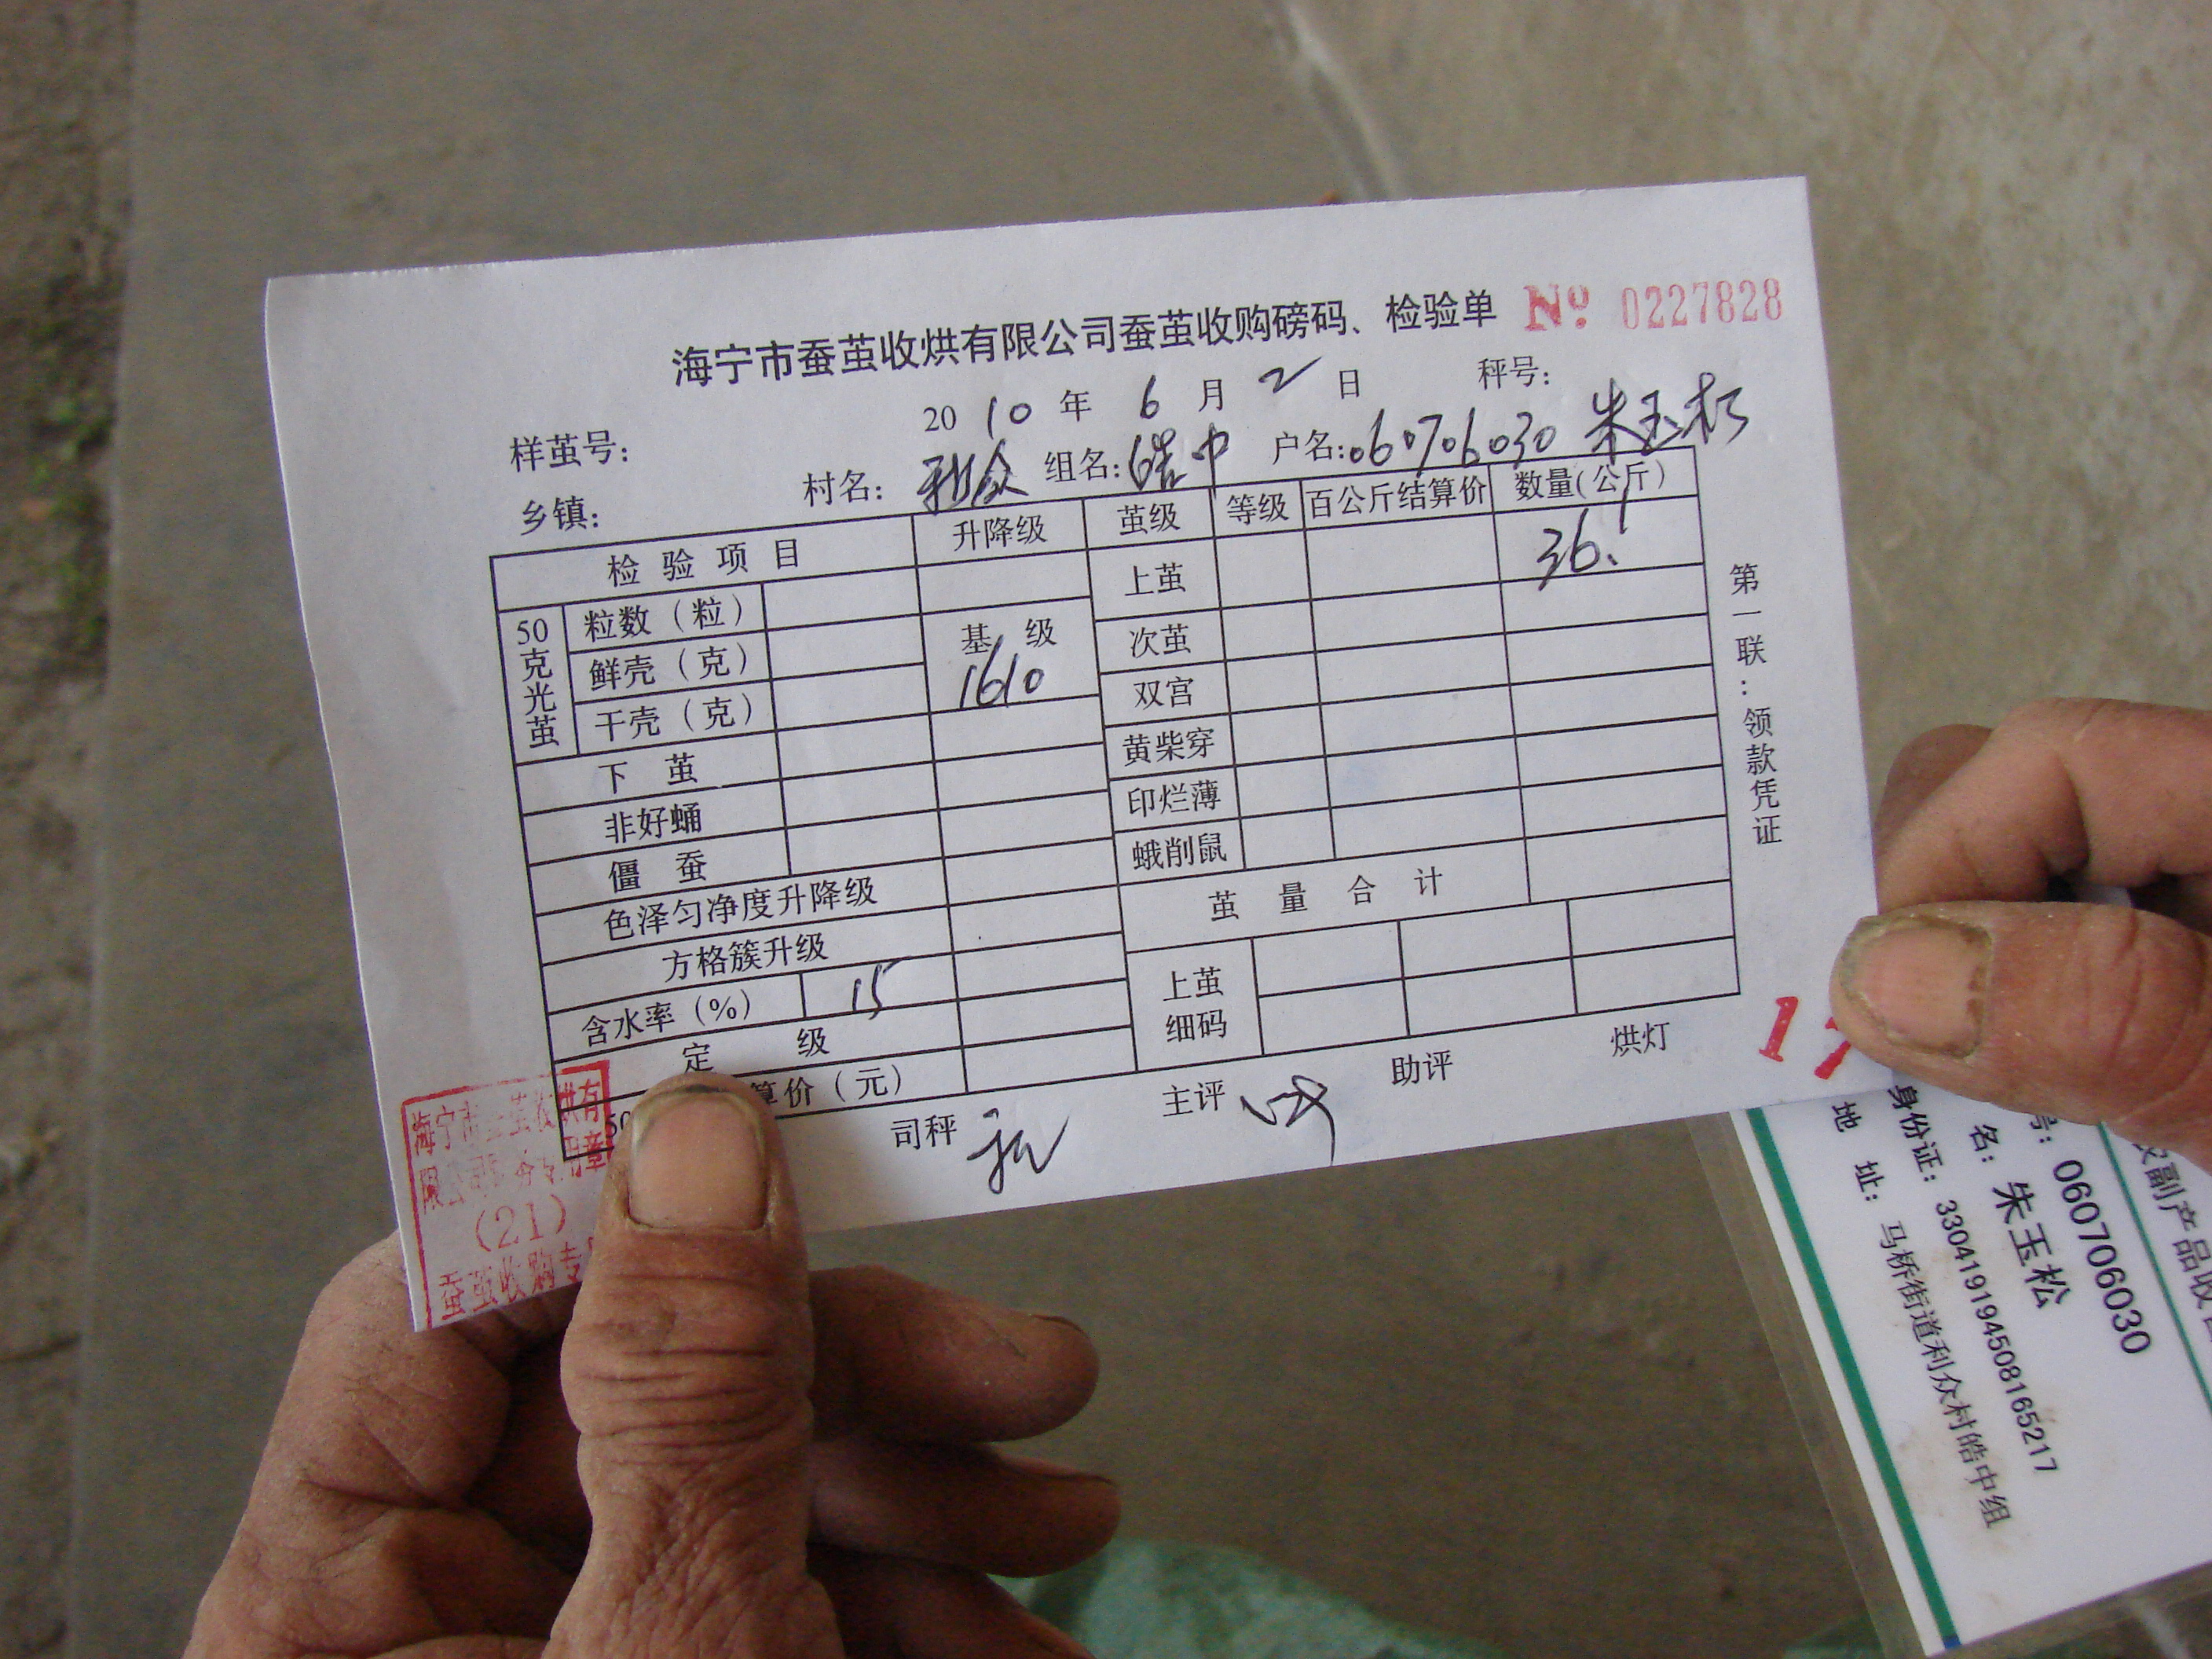 海宁市蚕茧收烘有限公司蚕茧收购磅码、检验单 № 0227828
2010年 6月 2日 秤号：
样茧号：
乡镇： 村名：利众 组名：皓中 户名：060706030 朱玉松
检验项目 升降级 茧级 等级 百公斤结算价 数量(公斤)
50克光茧
粒数（粒） 上茧 36.1
鲜壳（克） 基级 次茧
1610
干壳（克） 双宫
下茧 黄柴穿
非好蛹 印烂薄
僵蚕 蛾削鼠
色泽匀净度升降级 茧量合计
方格簇升级
含水率（%） 15 上茧细码
定级
50 算价（元）
司秤 主评 助评 烘灯
第一联：领款凭证
17
海宁市蚕茧收烘有
限公司 专用章
(21)
蚕茧收购专
副产品收
号：060706030
名：朱玉松
身份证：330419194508165217
地址：马桥街道利众村皓中组